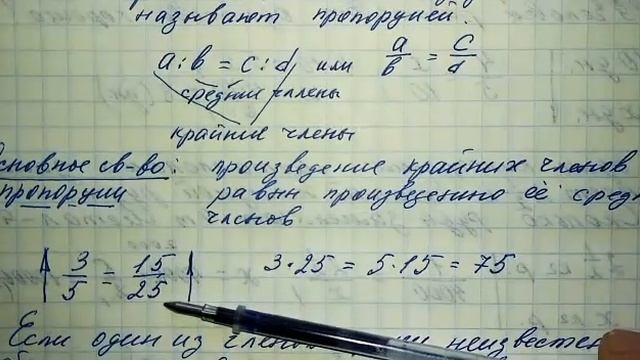 называют пропорцией.
a:b = c:d или a/b = c/d
средние члены
крайние члены
Основное св-во: произведение крайних членов
пропорции равны произведению её сред
членов
3/5 = 15/25 3·25 = 5·15 = 75
Если один из неизвестен